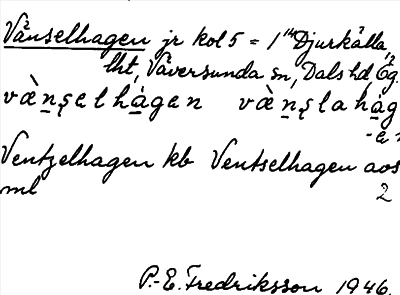 Vänselhagen jr kol 5 = 1/4 Djurkälla
lht, Väversunda sn, Dals hd, Ög.
væ̀nşelhàgen væ̀nşlahàg
-en
Ventzelhagen kb Ventselhagen aos
ml 2
P.-E. Fredriksson 1946.